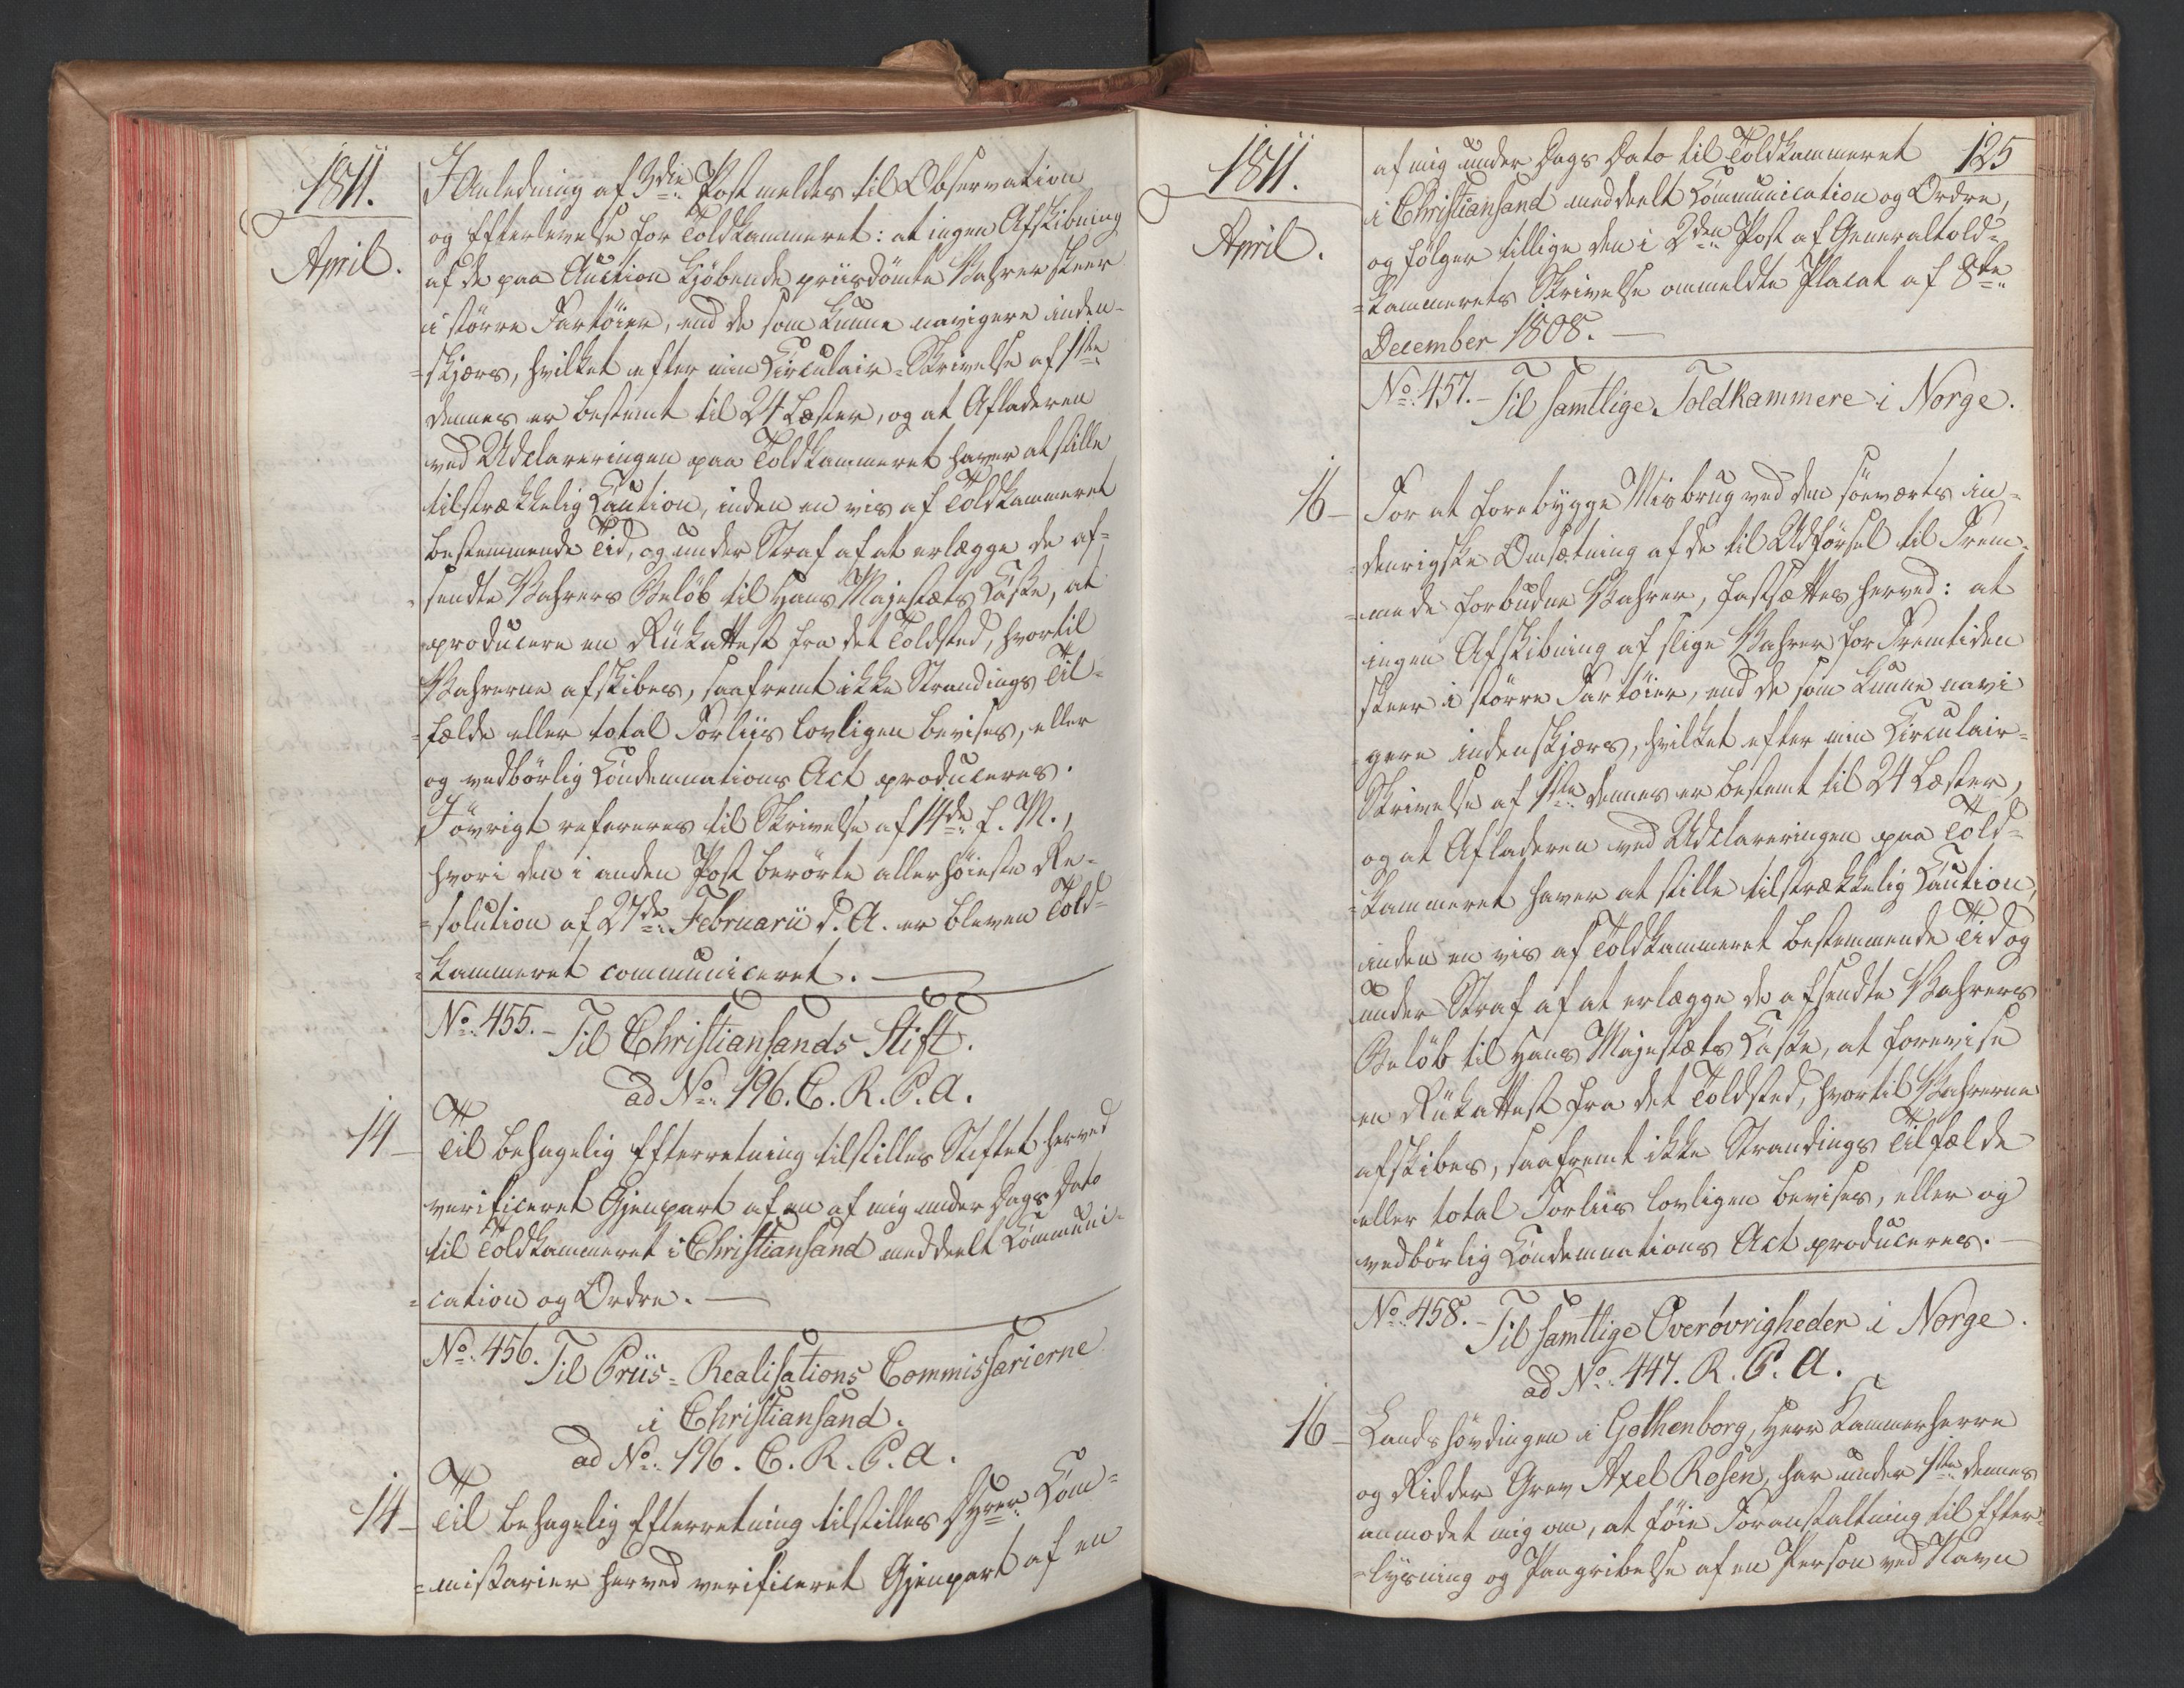 1811.
April.
I Anledning af 3die Post meldes til Observation
og Efterlevelse for Toldkammeret: at ingen Afskibning
af de paa Auction kjöbende priisdömte Vahrer skeer
i större Fartöier, end de som kunne navigere inden-
=skjærs, hvilket efter min Circulair-Skrivelse af 1ste
dennes er bestemt til 24 Læster, og at Afladeren
ved Udclareringen paa Toldkammeret haver at stille
tilstrækkelig Caution, inden en vis af Toldkammeret
bestemmende Tid, og under Straf af at erlægge de af-
=sendte Vahrers Belöb til Hans Majestæts Casse, at
producere en Rükattest fra det Toldsted, hvortil
Vahrerne afskibes, saafremt ikke Strandings Til-
=fælde eller total Forliis lovligen bevises, eller
og vedbörlig Condemnations Act produceres.
Iövrigt refereres til Skrivelse af 14de f. M.,
hvori den i anden Post berörte allerhöieste Re-
=solution af 27de Februarii d. A. er bleven Told-
=kammeret communiceret.
No. 455. - Til Christiansands Stift.
ad No. 196. C. R. P. A.
14 - Til behagelig Efterretning tilstilles Stiftet herved
verificeret Gjenpart af en af mig under Dags Dato
til Toldkammeret i Christiansand meddeelt Communi-
=cation og Ordre.
No. 456. Til Priis-Realisations Commissarierne
i Christiansand.
ad No. 196. C. R. P. A.
14 - Til behagelig Efterretning tilstilles D'Hrer Com-
=missarier herved verificeret Gjenpart af en
1811.
April.
125
af mig under Dags Dato til Toldkammeret
i Christiansand meddeelt Communication og Ordre,
og fölger tillige den i 2den Post af Generaltold-
=kammerets Skrivelse ommeldte Placat af 8de
December 1808.
No. 457. - Til samtlige Toldkammere i Norge.
16 - For at forebygge Misbrug ved den söeværts in-
=denrigske Omsætning af de til Udförsel til Frem-
=mede forbudne Vahrer, fastsættes herved: at
ingen Afskibning af slige Vahrer for Fremtiden
skeer i större Fartöier, end de som kunne navi
gere indenskjærs, hvilket efter min Circulair-
Skrivelse af 1ste dennes er bestemt til 24 Læster,
og at Afladeren ved Udclareringen paa Told-
=kammeret haver at stille tilstrækkelig Caution,
inden en vis af Toldkammeret bestemmende Tid og
under Straf af at erlægge de afsendte Vahrers
Belöb til Hans Majestæts Casse, at forevise
en Rükattest fra det Toldsted, hvortil Vahrerne
afskibes, saafremt ikke Strandings Tilfælde
eller total Forliis lovligen bevises, eller og
vedbörlig Condemnations Act produceres.
No. 458. - Til samtlige Överövrigheder i Norge.
ad No. 447. R. P. A.
16 - Landshövdingen i Gothenborg, Herr Kammerherre
og Ridder Grev Axel Rosen, har under 1ste dennes
anmodet mig om, at föie Foranstaltning til Efter-
=lysning og Paagribelse af en Person ved Navn